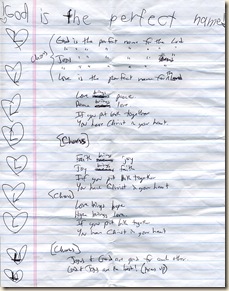 God is the perfect name
Chorus
God is the perfect name for the Lord
Joy " " " " " "
Love is the perfect name for the Lord
Love brings peace
Peace brings love
If you put both together
You have Christ in your heart
(Chorus)
Faith brings joy
Joy brings faith
If you put both together
You have Christ in your heart
(Chorus)
Love brings hope
Hope brings love
If you put both together
You have Christ in your heart
(Chorus)
Joy & God are good for each other
God & Joy are the best!